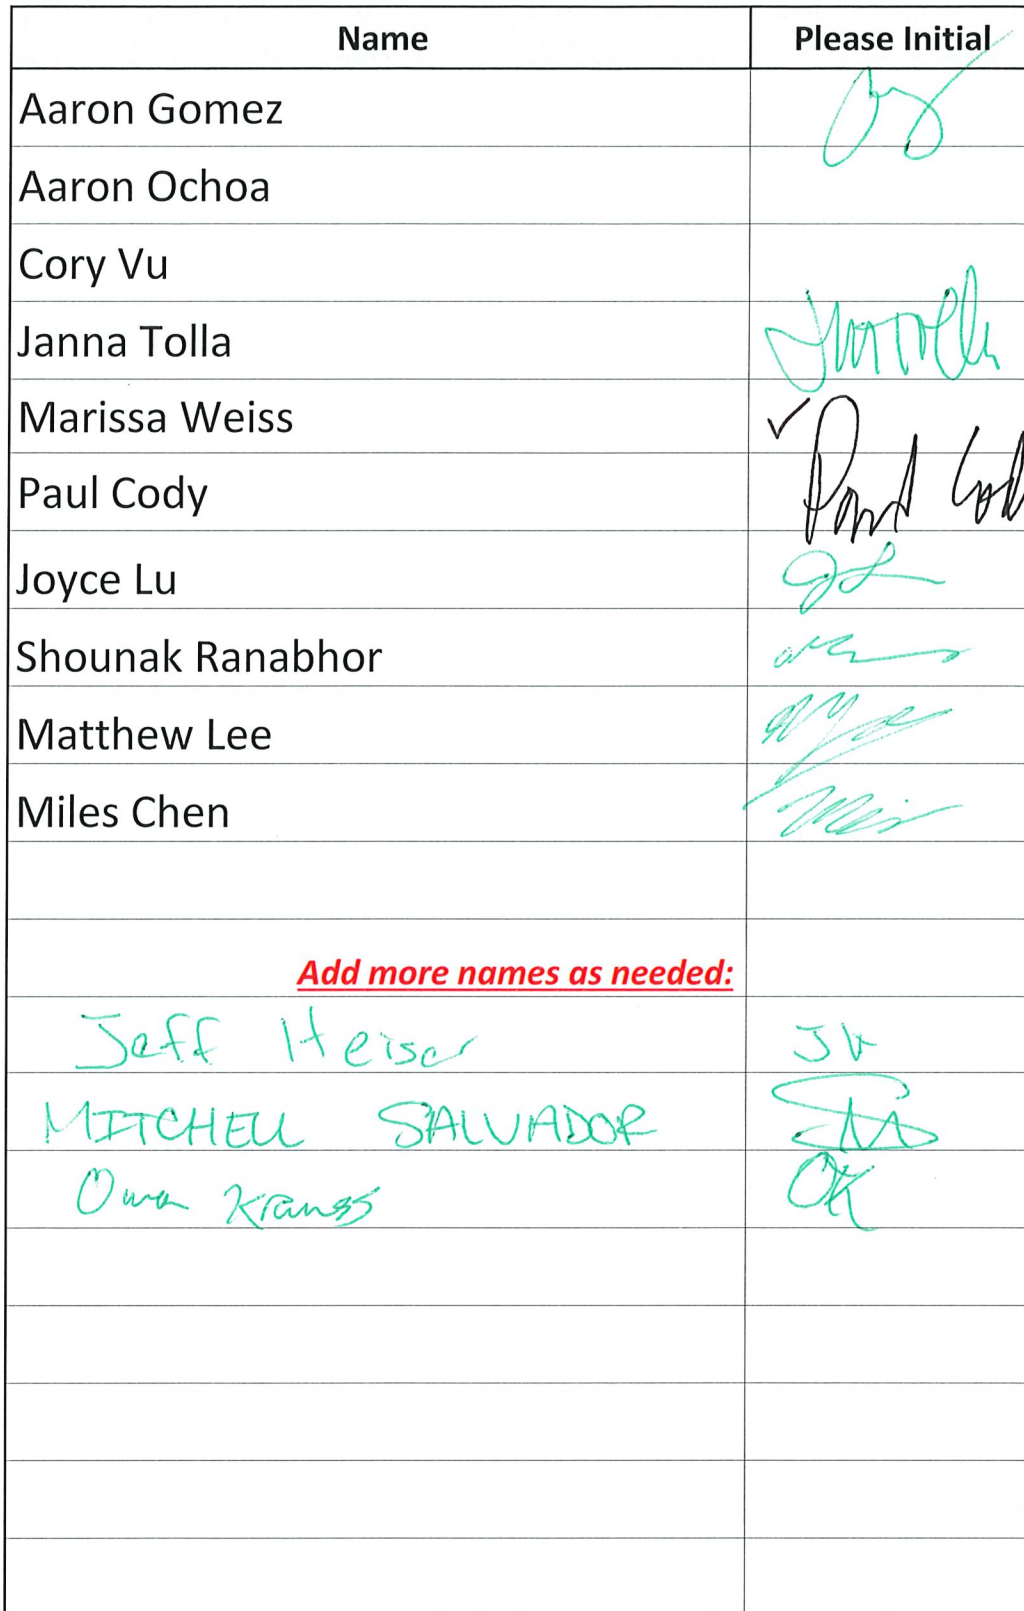 Name Please Initial
Aaron Gomez
Aaron Ochoa
Cory Vu
Janna Tolla
Marissa Weiss ✓
Paul Cody
Joyce Lu JL
Shounak Ranabhor
Matthew Lee
Miles Chen
Add more names as needed:
Jeff Heiser JH
MITCHELL SALVADOR
Owen Krauss OK